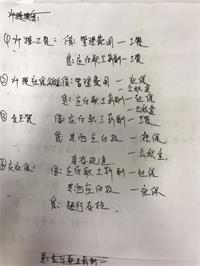 计提工资:
①计提工资: 借:管理费用—工资
贷:应付职工薪酬—工资
②计提社保公积金 借:管理费用—社保
—公积金
贷:应付职工薪酬—社保
—公积金
③发工资 借:应付职工薪酬—工资
贷:其他应付款—社保
—公积金
库存现金
④交社保: 借:应付职工薪酬—社保
其他应付款—社保
贷:银行存款
贷:应付职工薪酬—